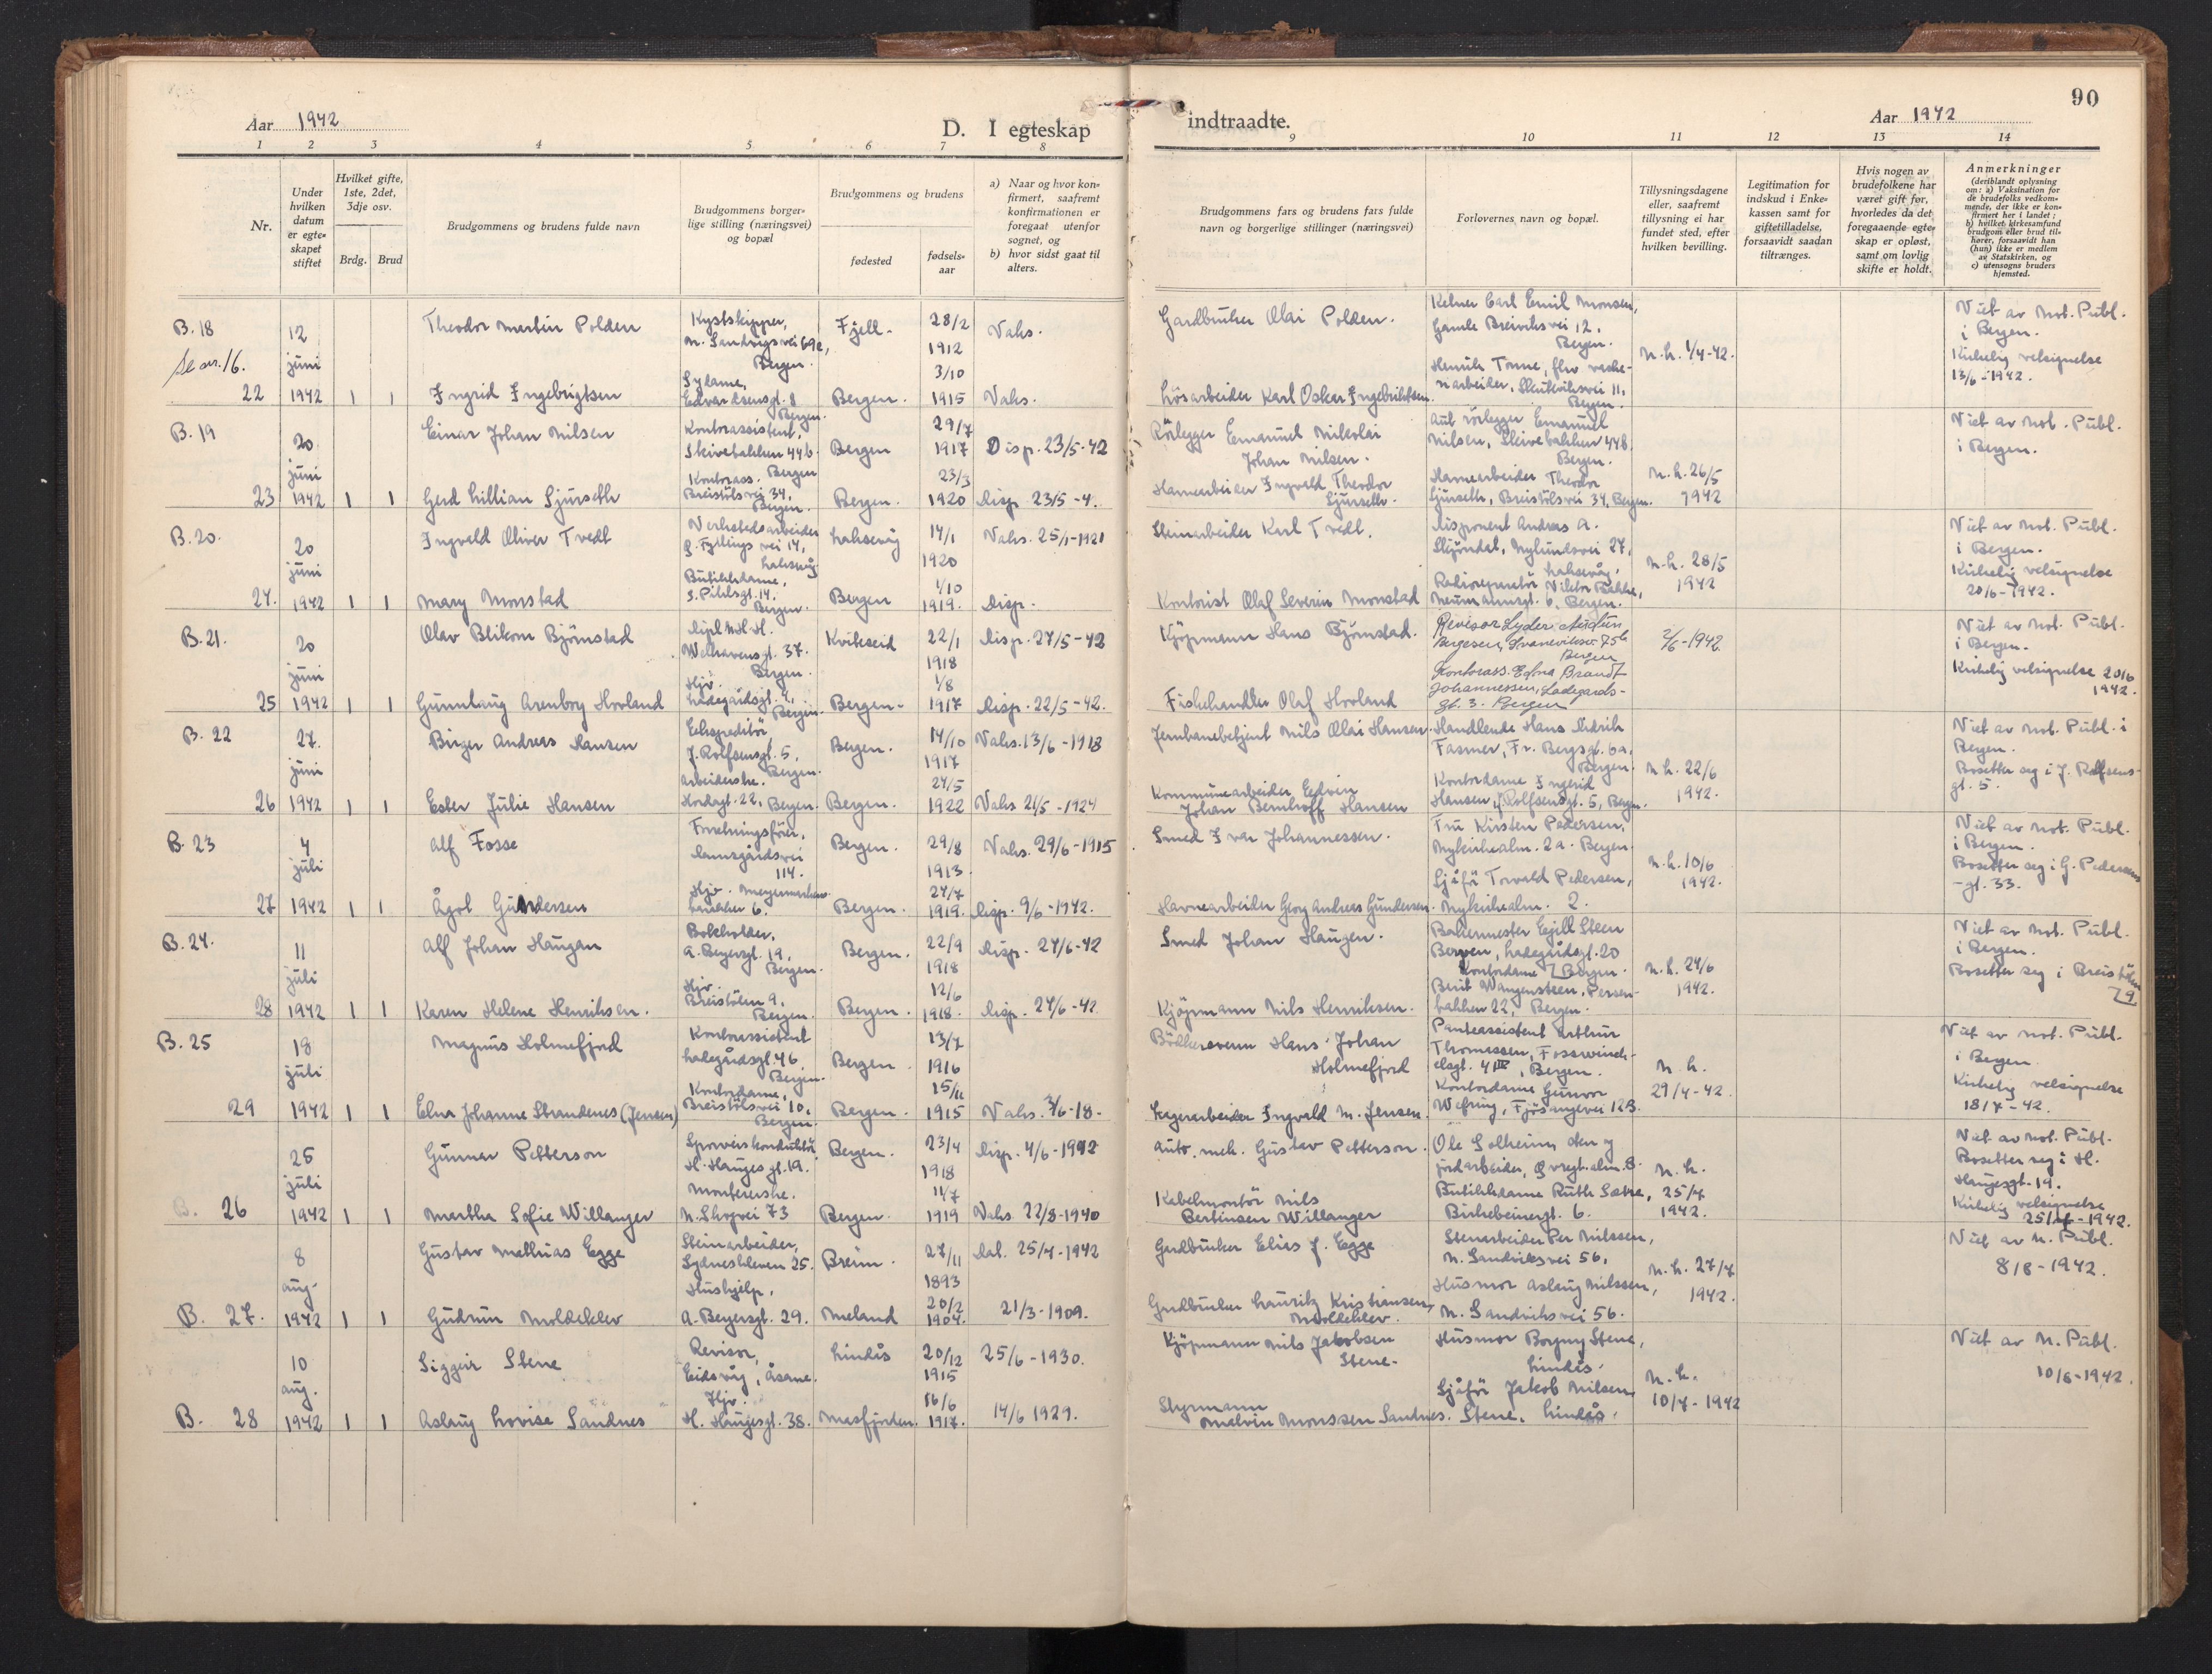 90
Aar 1942
D. I egteskap
indtraadte.
Aar 1942
1 2 3 4 5 6 7 8
9 10 11 12 13 14
Nr.
Under
hvilken
datum
er egte-
skapet
stiftet
Hvilket gifte,
1ste, 2det,
3dje osv.
Brdg. Brud
Brudgommens og brudens fulde navn
Brudgommens borger-
lige stilling (næringsvei)
og bopæl
Brudgommens og brudens
fødested
fødsels-
aar
a) Naar og hvor kon-
firmert, saafremt
konfirmationen er
foregaat utenfor
sognet, og
b) hvor sidst gaat til
alters.
Brudgommens fars og brudens fars fulde
navn og borgerlige stillinger (næringsvei)
Forlovernes navn og bopæl.
Tillysningsdagene
eller, saafremt
tillysning ei har
fundet sted, efter
hvilken bevilling.
Legitimation for
indskud i Enke-
kassen samt for
giftetilladelse,
forsaavidt saadan
tiltrænges.
Hvis nogen av
brudefolkene har
været gift før,
hvorledes da det
foregaaende egte-
skap er opløst,
samt om lovlig
skifte er holdt.
Anmerkninger
(deriblandt oplysning
om: a) Vaksination for
de brudefolks vedkom-
mende, der ikke er kon-
firmert her i landet;
b) hvilket kirkesamfund
brudgom eller brud til-
hører, forsaavidt han
(hun) ikke er medlem
av Statskirken, og
c) utensogns bruders
hjemsted.
B. 18
Se nr. 16.
22
12
juni
1942 1 1
Theodor Martin Polden
Ingrid Ingebrigtsen
Kystskipper,
n. Sandvigsvei 69c,
Bergen.
Sydame,
Edvardsensgt. 8
Bergen.
Fjell.
Bergen.
28/2
1912
3/10
1915
Vahs.
Vahs.
Gardbruker Olai Polden.
Løsarbeider Karl Oskar Ingebriktsen.
Kelner Carl Emil Monsen,
Gamle Breiviksvei 12.
Bergen.
Henrik Tonne,
Skuteviksvei 11,
Bergen.
N.h. 1/4-42.
Viet av Not. Publ.
i Bergen.
Kirkelig velsignelse
13/6-1942.
B. 19
23
20
juni
1942 1 1
Einar Johan Nilsen
Gerd Lillian Sjurseth
Kontorassistent,
Skivebakken 44b
Bergen
Kontorass.
Breistølsvei 34,
Bergen.
Bergen
Bergen.
29/7
1917
23/3
1920
Disp. 23/5-42
Disp. 23/5-4.
Rörlegger Emanuel Nikolai
Johan Nilsen.
Havnearbeider Ingvald Theodor
Sjurseth.
Aut rörlegger Emanuel
Nilsen, Skivebakken 44B.
Bergen.
Havnearbeider Theodor
Sjurseth, Breistölsvei 34, Bergen.
N.h. 26/5
1942
Viet av Not. Publ.
i Bergen.
B. 20.
24.
20
juni
1942 1 1
Ingvald Oliver Tvedt
Mary Monstad
Verkstedsarbeider
G. Fyllings vei 14,
Laksevåg
Butikkdame,
S. Pihlsgt. 14.
Bergen.
Laksevåg
Bergen
14/1
1920
1/10
1919.
Vahs. 25/1-1921
Disp.
Steinarbeider Karl Tvedt.
Kontorist Olaf Severin Monstad
Disponent Andreas A.
Skjöndal, Nylundsvei 27,
Laksevåg.
Radioreparatör Viktor Bakke,
Neumannsgt. 6, Bergen.
N.h. 28/5
1942
Viet av Not. Publ.
i Bergen.
Kirkelig velsignelse
20/6-1942.
B. 21.
25
20
juni
1942 1 1
Olav Blikom Björnstad
Gunnlaug Arenborg Hovland
Dipl. N.H.H.
Welhavensgt. 37.
Bergen.
Hjv.
Ladegårdsgt. 4,
Bergen.
Kviteseid
Bergen.
22/1
1918
1/8
1917
Disp. 27/5-42
Disp. 22/5-42.
Kjöpmann Hans Björnstad.
Fiskehandler Olaf Hovland
Revisor Lyder Audun
Bergesen, Svaneviksv. 75b
Bergen
Kontorass. Edna Brandt
Johannessen, Ladegards-
gt. 3. Bergen
2/6-1942
Viet av Not. Publ.
i Bergen.
Kirkelig velsignelse 20/6
1942.
B. 22
26
27.
juni
1942 1 1
Birger Andreas Hansen
Ester Julie Hansen
Ekspeditör,
J. Rolfsensgt. 5,
Bergen.
Arbeiderske.
Hordagt. 22, Bergen.
Bergen.
Bergen.
14/10
1917
24/5
1922
Vahs. 13/6-1918
Vahs 21/5-1924
Jernbanebetjent Nils Olai Hansen.
Kommunearbeider Edvin
Johan Bernhoff Hansen
Handlende Hans Didrik
Fasmer, Fr. Bergsgt. 6a,
Bergen.
Kontordame Ingerid
Hansen, J. Rolfsensgt. 5, Bergen.
N.h. 22/6
1942.
Viet av Not. Publ. i
Bergen.
Bosetter seg i J. Rolfsens-
gt. 5.
B. 23
27
4
juli
1942 1 1
Alf Fosse
Ågot Gundersen
Forretningsförer,
Damsgårdsvei
114.
Hjv. Meyermarkens
bakken 6.
Bergen.
Bergen.
29/8
1913
24/7
1919.
Vahs. 29/6-1915
Disp. 9/6-1942.
Smed Ivar Johannessen.
Havnearbeider Georg Andreas Gundersen.
Fru Kirsten Pedersen,
Nykirkealm. 2a. Bergen
Sjåför Torvald Pedersen,
Nykirkealm. 2.
N.h. 10/6
1942.
Viet av Not. Publ.
i Bergen.
Bosetter seg i G. Pedersens
-gt. 33.
B. 24.
28
11
juli
1942 1 1
Alf Johan Haugan
Karen Helene Henriksen.
Bokholder,
A. Beyersgt. 19,
Bergen.
Hjv.
Breistölen 9,
Bergen.
Bergen.
Bergen.
22/9
1918
12/6
1918.
Disp. 24/6-42
Disp. 24/6-42
Smed Johan Haugen.
Kjöpmann Nils Henriksen.
Bakermester Egill Steen
Berven, Ladegårdsgt. 20
Bergen.
Kontordame
Berit Wangensteen, Persen-
bakken 22, Bergen.
N.h. 24/6
1942.
Viet av Not. Publ.
i Bergen.
Bosetter seg i Breistölen
9.
B. 25
29
18
juli
1942 1 1
Magnus Holmefjord
Elna Johanne Strandenes (Jensen)
Kontorassistent
Ladegårdsgt. 46,
Bergen.
Kontordame,
Breistölsvei 10,
Bergen.
Bergen.
Bergen.
13/7
1916
15/11
1915
Vahs. 3/6-18.
Bödkersvenn Hans Johan
Holmefjord
Lagerarbeider Ingvald M. Jensen.
Panteassistent Arthur
Thomassen, Fosswinck-
elsgt. 41 III, Bergen.
Kontordame Gunvor
Wefring, Fjösangervei 12B.
N.h.
29/4-42.
Viet av Not. Publ.
i Bergen.
Kirkelig velsignelse
18/7-42.
B. 26
25
juli
1942 1 1
Gunnar Petterson
Martha Sofie Willanger
Sporveiskonduktör
H. Haugesgt. 19.
Monterske.
N. Skogvei 73
Bergen.
Bergen.
23/4
1918
11/7
1919
Disp. 4/6-1942
Vahs. 22/8-1940
Auto. mek. Gustav Petterson.
Kabelmontör Nils
Bertinsen Willanger
Ole Solheim,
jordarbeider, Øvregt. alm. 8.
Butikkdame Ruth Sætre,
Birkebeinergt. 6.
N.h.
25/4
1942.
Viet av Not. Publ.
Bosetter seg i H.
Haugesgt. 19.
Kirkelig velsignelse
25/7-1942.
B. 27.
8
aug.
1942 1 1
Gustav Mathias Egge
Gudrun Moldeklev
Steinarbeider,
Sydneskleven 25.
Hushjelp,
A. Beyersgt. 29.
Breim.
Meland
27/11
1893
20/2
1904.
Dal. 25/4-1942
21/3-1909.
Gardbruker Elias J. Egge
Gardbruker Lauritz Kristiansen
Moldeklev.
Stenarbeider Per Nilssen,
N. Sandviksvei 56,
Husmor Aslaug Nilssen,
N. Sandviksvei 56.
N.h. 27/7
1942.
Viet av N. Publ.
8/8-1942.
B. 28
10
aug.
1942 1 1
Siggeir Stene
Aslaug Lovise Sandnes
Revisor,
Eidsvåg, Åsane.
Hjv.
H. Haugesgt. 38.
Lindås
Masfjorden.
20/12
1915
16/6
1917.
25/6-1930.
14/6 1929.
Kjöpmann Nils Jakobsen
Stene.
Styrmann
Melvin Monssen Sandnes.
Husmor Borgny Stene,
Lindås.
Sjåför Jakob Nilsen
Stene. Lindås.
N.h.
10/7-1942
Viet av N. Publ.
10/8-1942.